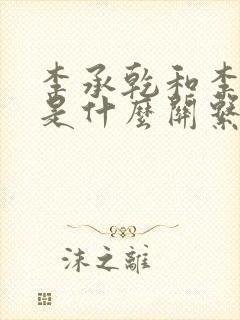 李承乾和李
是什麼關繫
沫之離